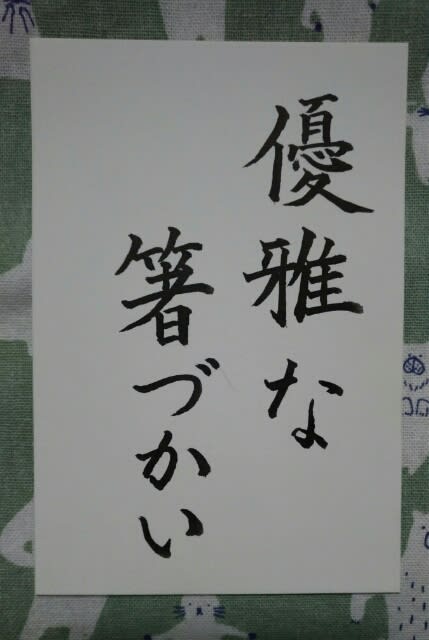 優雅な
箸づかい